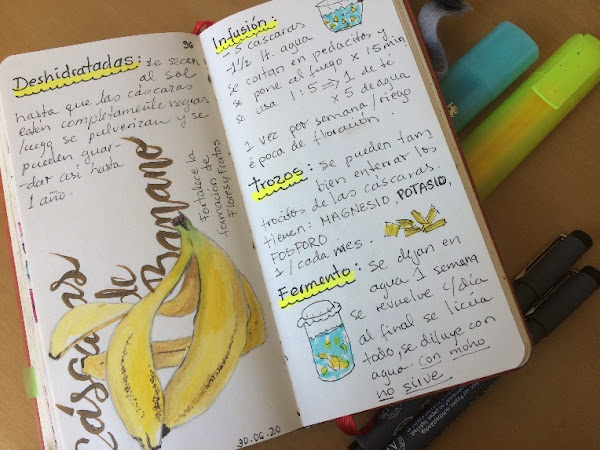 96
Deshidratadas: se secan
al sol
hasta que las cáscaras
estén completamente negras
luego se pulverizan y se
pueden guar-
dar así hasta
1 año.
Cáscaras
de
Banano
Fortalece la
formación de
Flores y Frutos
30.06.20
Infusión:
5 cáscaras
1 1/2 lt. agua
se cortan en pedacitos y
se pone al fuego x 15 min.
se usa 1:5 ⇒ 1 de té
x 5 de agua
1 vez por semana/riego
época de floración.
Trozos: se pueden tam
bien enterrar los
trocitos de las cáscaras.
tienen: MAGNESIO, POTASIO,
FOSFORO.
1/cada mes.
Fermento: se dejan en
agua 1 semana
se revuelve c/día
al final se licúa
todo, se diluye con
agua. con moho
no sirve.